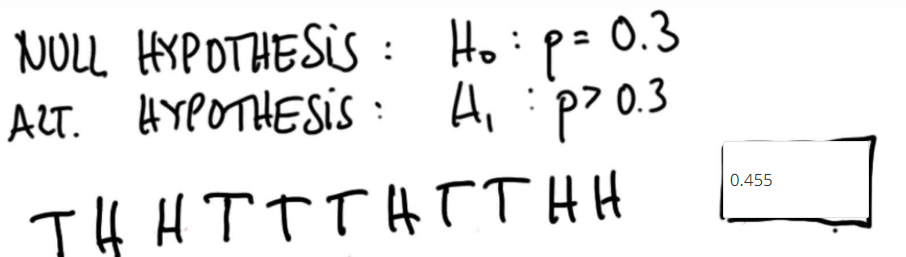 NULL HYPOTHESIS : H₀ : p = 0.3
ALT. HYPOTHESIS : H₁ : p > 0.3
0.455
T H H T T T H T T H H